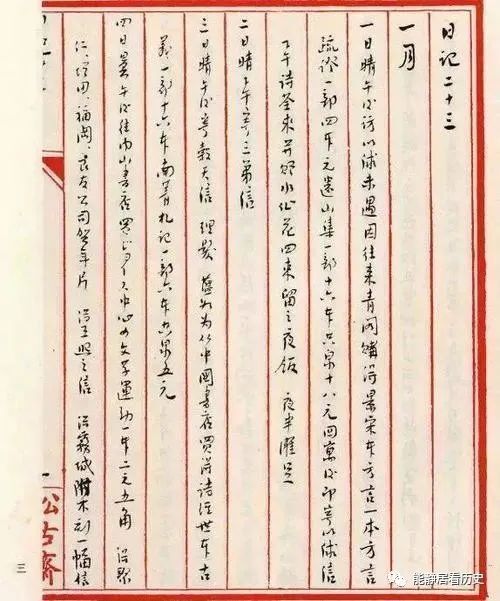 日记二十三
一月
一日晴午后访以俅未遇因往来青阁购得景宋本方言一本方言
疏证一部四本元遗山集一部十六本共泉十八元回寓后即寄以俅信
下午诗荃来并赠水仙花四束留之夜饭 夜半濯足
二日晴下午寄三弟信
三日晴午后寄榖天信 理髮 为从中国书店买得诗经世本古
義一部十六本南菁札记一部六本共泉五元
四日昙午后往内山书店买 中心の文学運動一本二元五角 得聚
仁、增田、福岡、良友公司贺年片 得王熙之信 得霧城附木刻一幅信
松古齋
三
能静居看历史